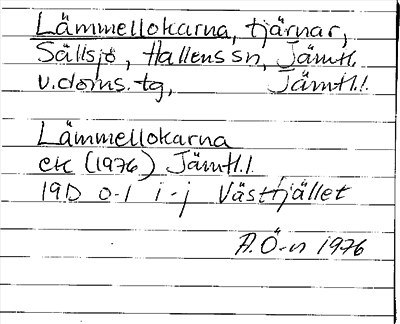 Lämmellokarna, tjärnar,
Sällsjö, Hallens sn, Jämtl.
v. doms. tg, Jämtl. l.
Lämmellokarna
ek (1976) Jämtl. l.
19D 0-1 i-j Västfjället
A.Ö-n 1976